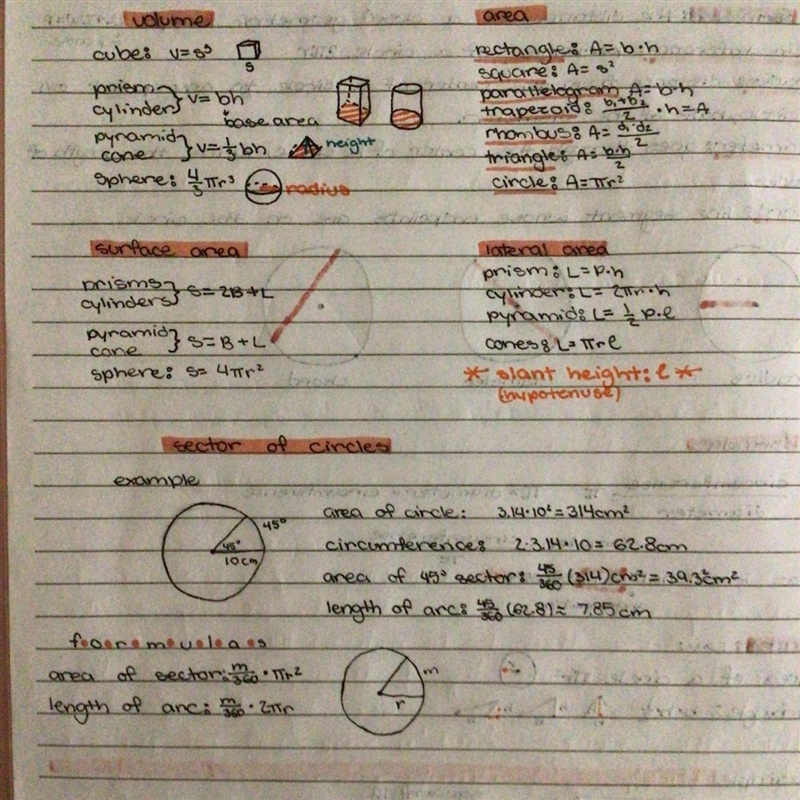 volume
cube: V=s³
s
prism
cylinder } V= bh
base area
pyramid
cone } V=⅓ bh
height
sphere: 4/3 πr³
radius
area
rectangle: A= b·h
square: A= s²
parallelogram A= b·h
trapezoid: (b₁+b₂)/2 ·h=A
rhombus: A= (d₁·d₂)/2
triangle: A= (b·h)/2
circle: A=πr²
surface area
prisms
cylinders } S= 2B+L
pyramid
cone } S= B+L
sphere: S= 4πr²
lateral area
prism: L= p.h
cylinder: L= 2πr·h
pyramid: L= ½ p.ℓ
cones: L= πrℓ
* slant height: ℓ *
(hypotenuse)
sector of circles
example
45°
45°
10cm
area of circle: 3.14·10²=314cm²
circumference: 2·3.14·10= 62.8cm
area of 45° sector: 45/360 (314)cm² = 39.3cm²
length of arc: 45/360 (62.8)= 7.85cm
f.o.r.m.u.l.a.s
area of sector: m/360 · πr²
length of arc: m/360 · 2πr
m
r